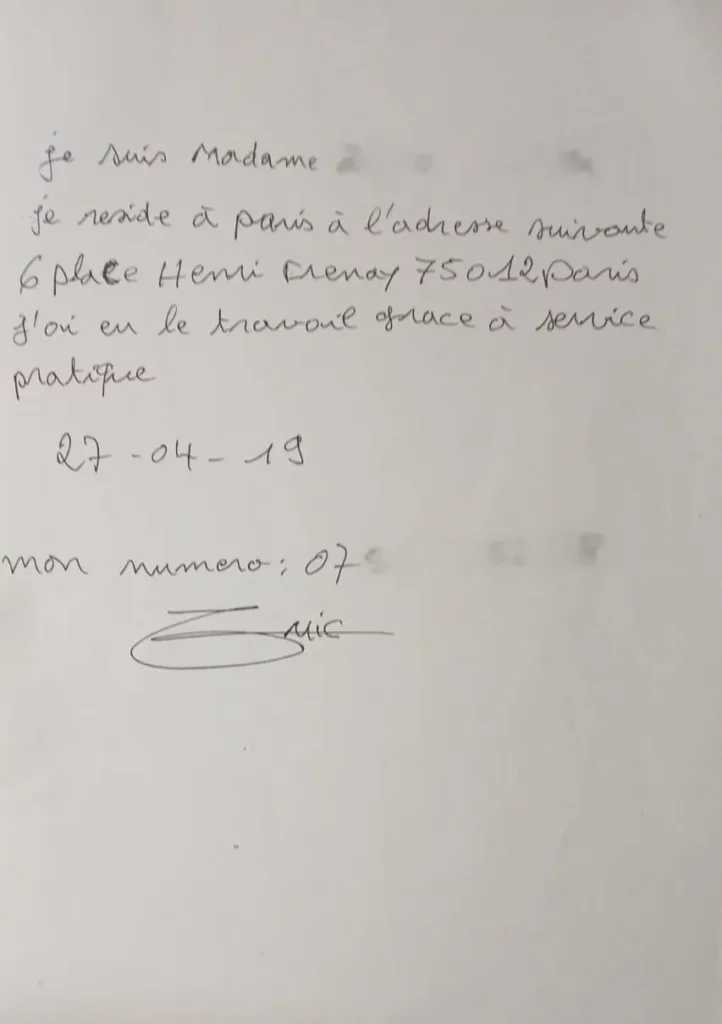 je suis Madame
je reside à paris à l'adresse suivante
6 place Henri Frenay 75012 paris
j'ai eu le travail grace à service
pratique
27-04-19
mon numero: 07